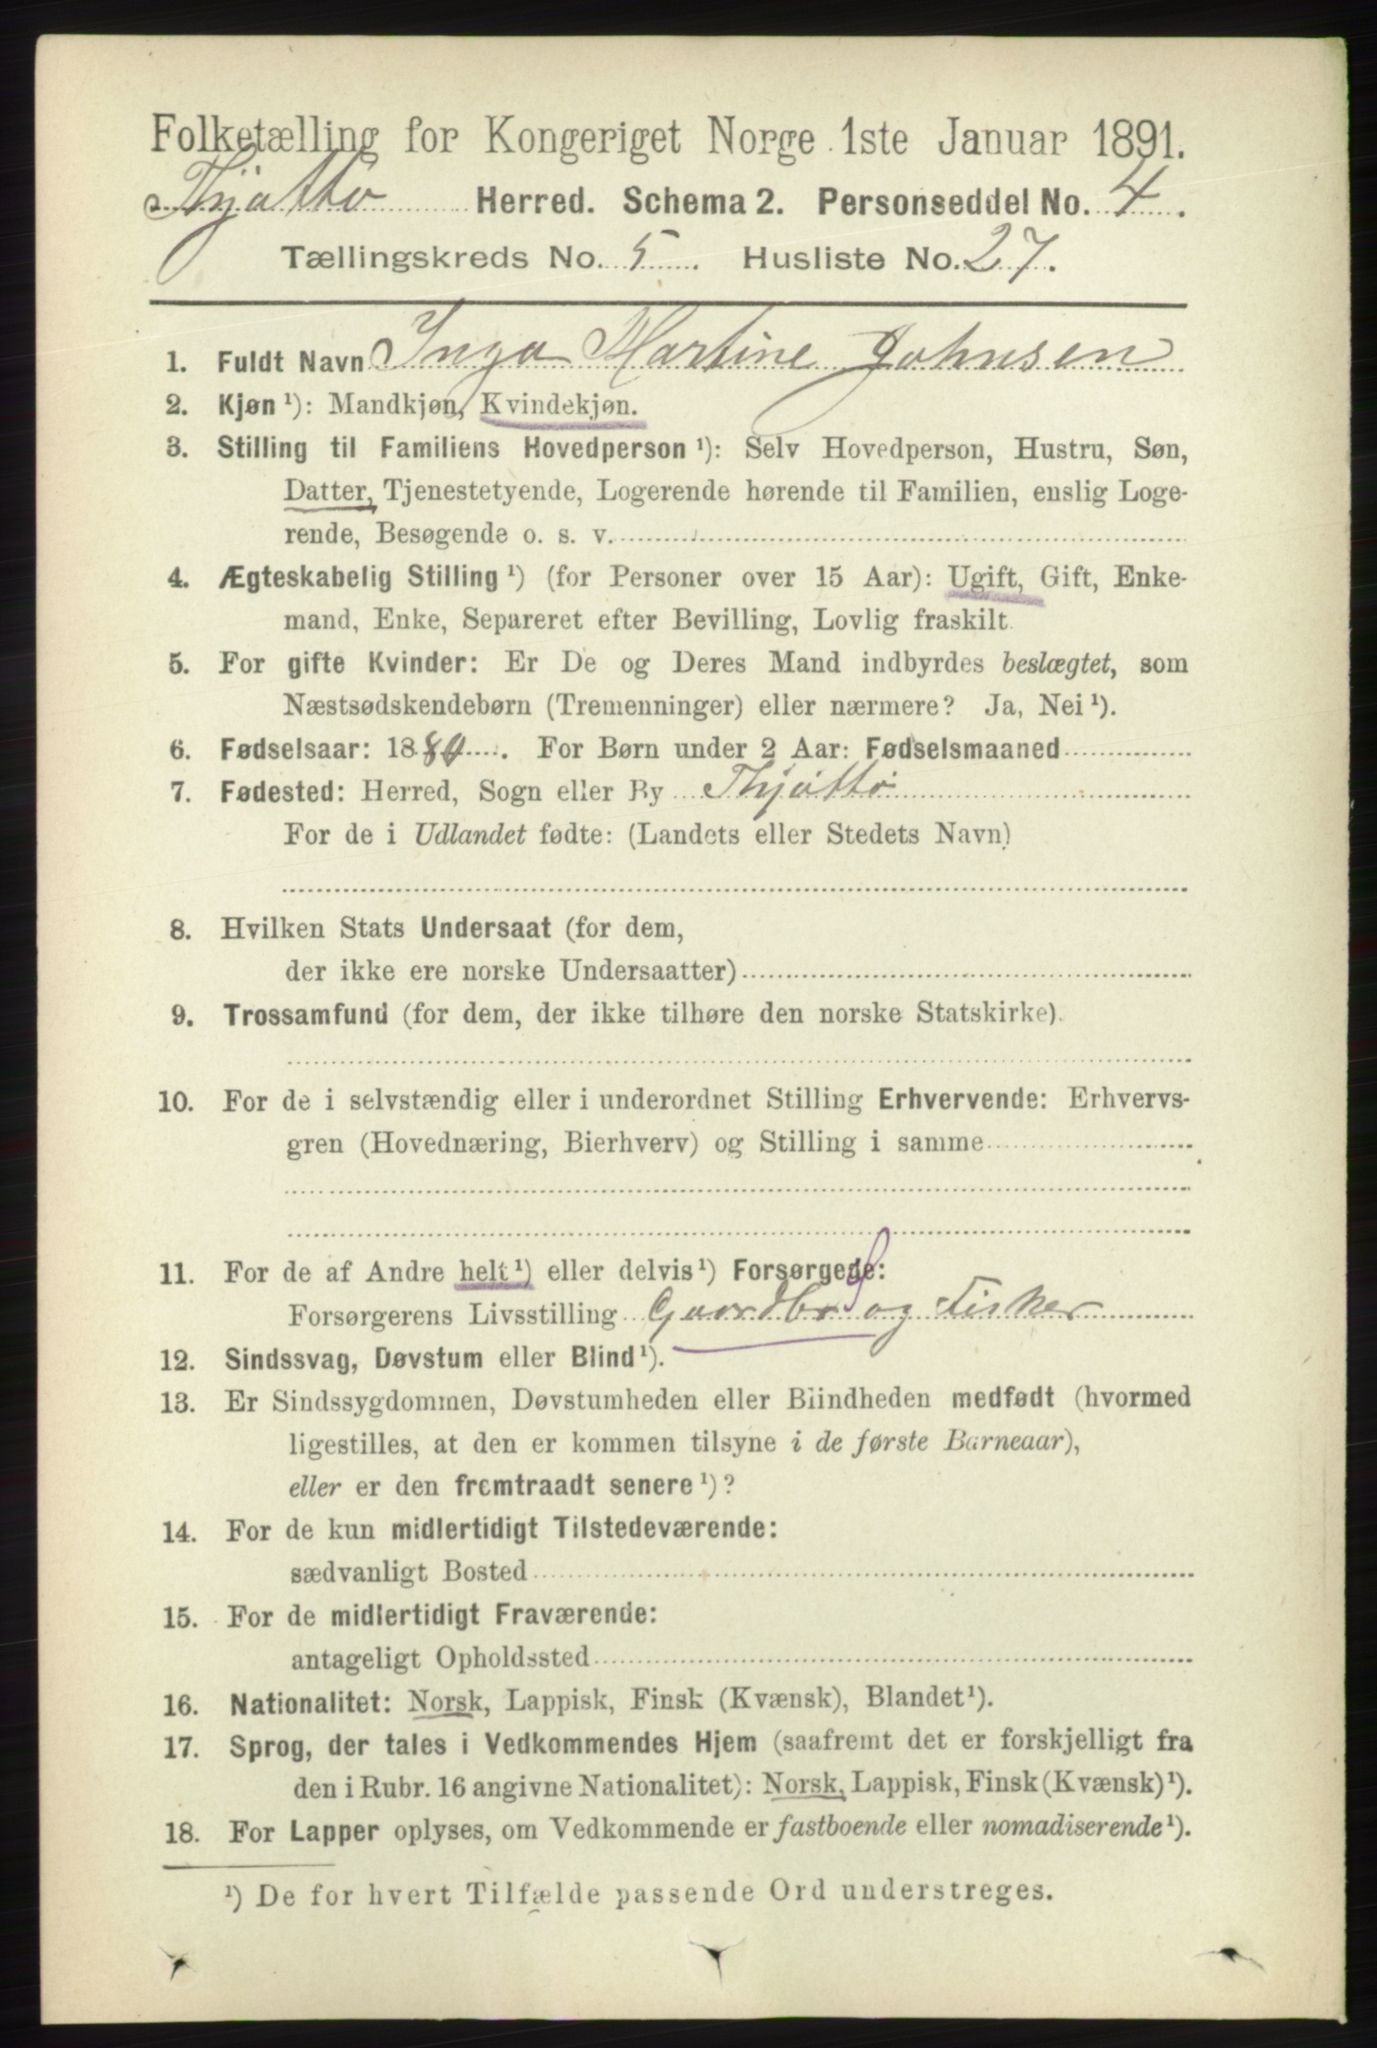 Folketælling for Kongeriget Norge 1ste Januar 1891.
Thjøttø Herred. Schema 2. Personseddel No. 4.
Tællingskreds No. 5. Husliste No. 27.
1. Fuldt Navn Inga Martine Johnsen
2. Kjøn ¹): Mandkjøn, Kvindekjøn.
3. Stilling til Familiens Hovedperson ¹): Selv Hovedperson, Hustru, Søn,
Datter, Tjenestetyende, Logerende hørende til Familien, enslig Loge-
rende, Besøgende o. s. v.
4. Ægteskabelig Stilling ¹) (for Personer over 15 Aar): Ugift, Gift, Enke-
mand, Enke, Separeret efter Bevilling, Lovlig fraskilt.
5. For gifte Kvinder: Er De og Deres Mand indbyrdes beslægtet, som
Næstsødskendebørn (Tremenninger) eller nærmere? Ja, Nei ¹).
6. Fødselsaar: 18 . For Børn under 2 Aar: Fødselsmaaned
7. Fødested: Herred, Sogn eller By Thjøttø
For de i Udlandet fødte: (Landets eller Stedets Navn)
8. Hvilken Stats Undersaat (for dem,
der ikke ere norske Undersaatter)
9. Trossamfund (for dem, der ikke tilhøre den norske Statskirke).
10. For de i selvstændig eller i underordnet Stilling Erhvervende: Erhvervs-
gren (Hovednæring, Bierhverv) og Stilling i samme
11. For de af Andre helt ¹) eller delvis ¹) Forsørgede:
Forsørgerens Livsstilling Gaardbr og Fisker
12. Sindssvag, Døvstum eller Blind ¹).
13. Er Sindssygdommen, Døvstumheden eller Blindheden medfødt (hvormed
ligestilles, at den er kommen tilsyne i de første Barneaar),
eller er den fremtraadt senere ¹)?
14. For de kun midlertidigt Tilstedeværende:
sædvanligt Bosted
15. For de midlertidigt Fraværende:
antageligt Opholdssted
16. Nationalitet: Norsk, Lappisk, Finsk (Kvænsk), Blandet ¹).
17. Sprog, der tales i Vedkommendes Hjem (saafremt det er forskjelligt fra
den i Rubr. 16 angivne Nationalitet): Norsk, Lappisk, Finsk (Kvænsk) ¹).
18. For Lapper oplyses, om Vedkommende er fastboende eller nomadiserende ¹).
¹) De for hvert Tilfælde passende Ord understreges.